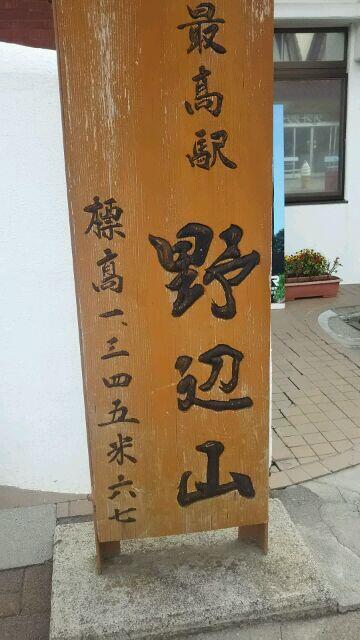 最高駅 野辺山
標高一、三四五米六七